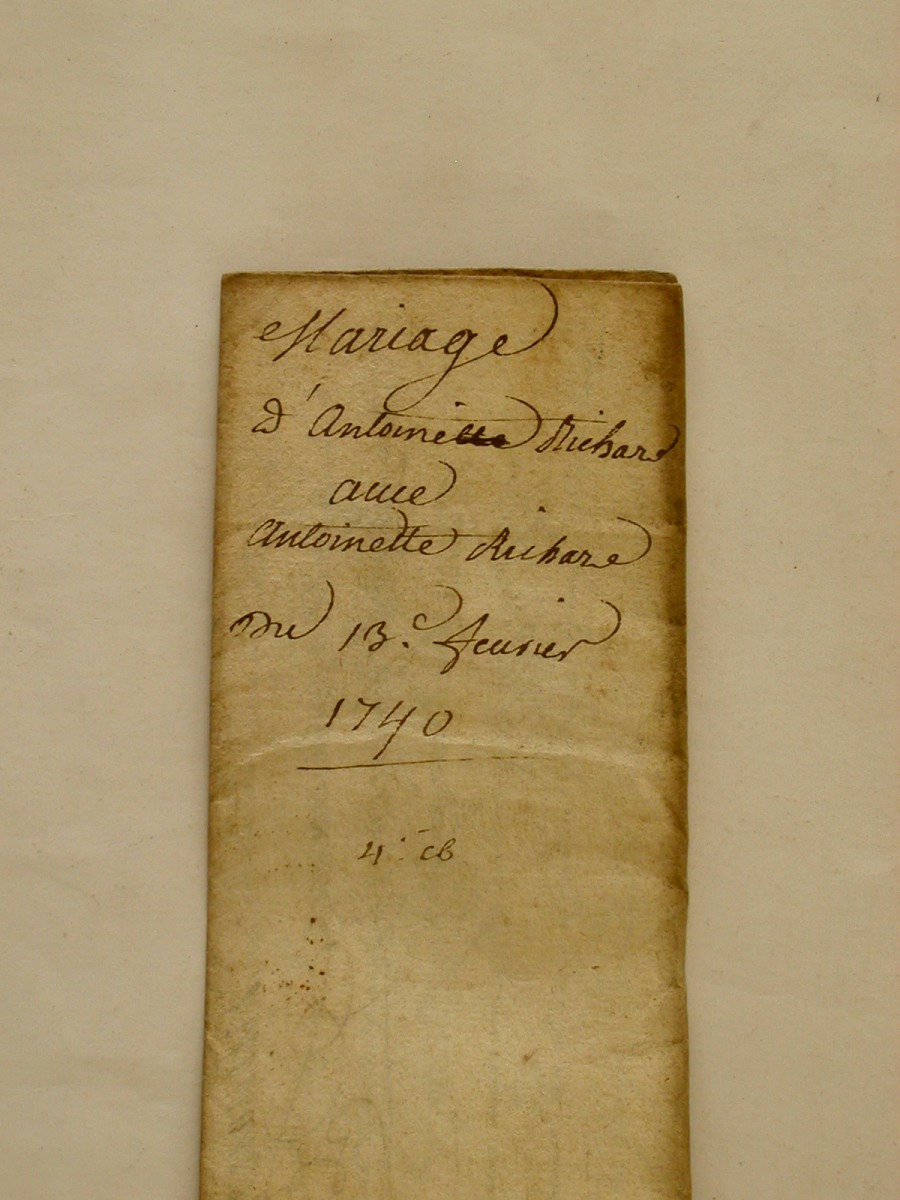 Mariage
d'Antoine Richard
auec
Antoinette Richard
Du 13.e feurier
1740
4.